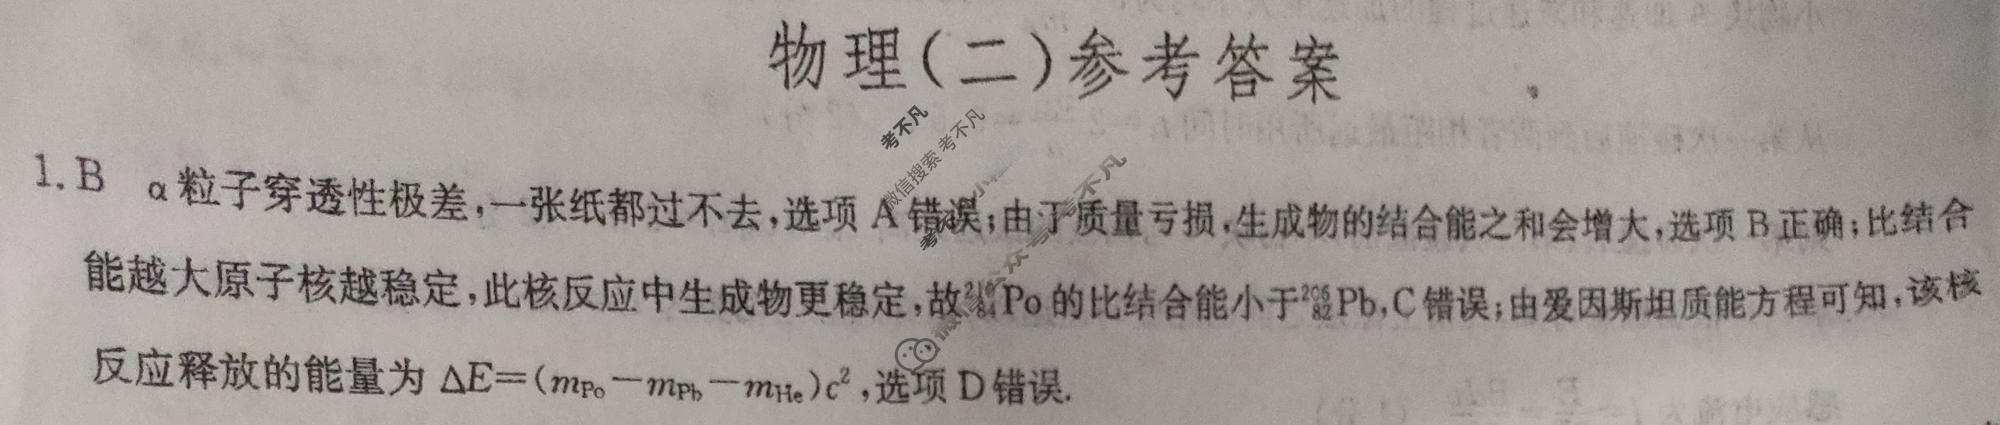 物理(二)参考答案
1. B α粒子穿透性极差,一张纸都过不去,选项 A 错误;由于质量亏损,生成物的结合能之和会增大,选项 B 正确;比结合
能越大原子核越稳定,此核反应中生成物更稳定,故²¹⁰₈₄Po 的比结合能小于²⁰⁶₈₂Pb,C 错误;由爱因斯坦质能方程可知,该核
反应释放的能量为 ΔE=(m_Po-m_Pb-m_He)c²,选项 D 错误.
考不凡
微信搜索 考不凡